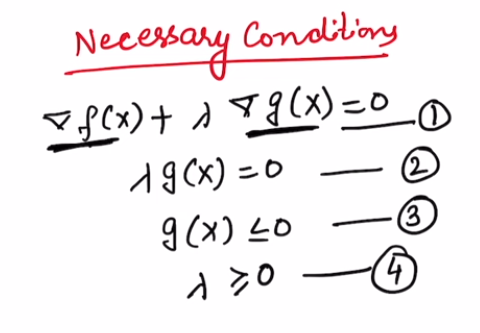 Necessary Conditions
∇f(x) + λ ∇g(x) = 0 —— ①
λ g(x) = 0 —— ②
g(x) ≤ 0 —— ③
λ ≥ 0 —— ④